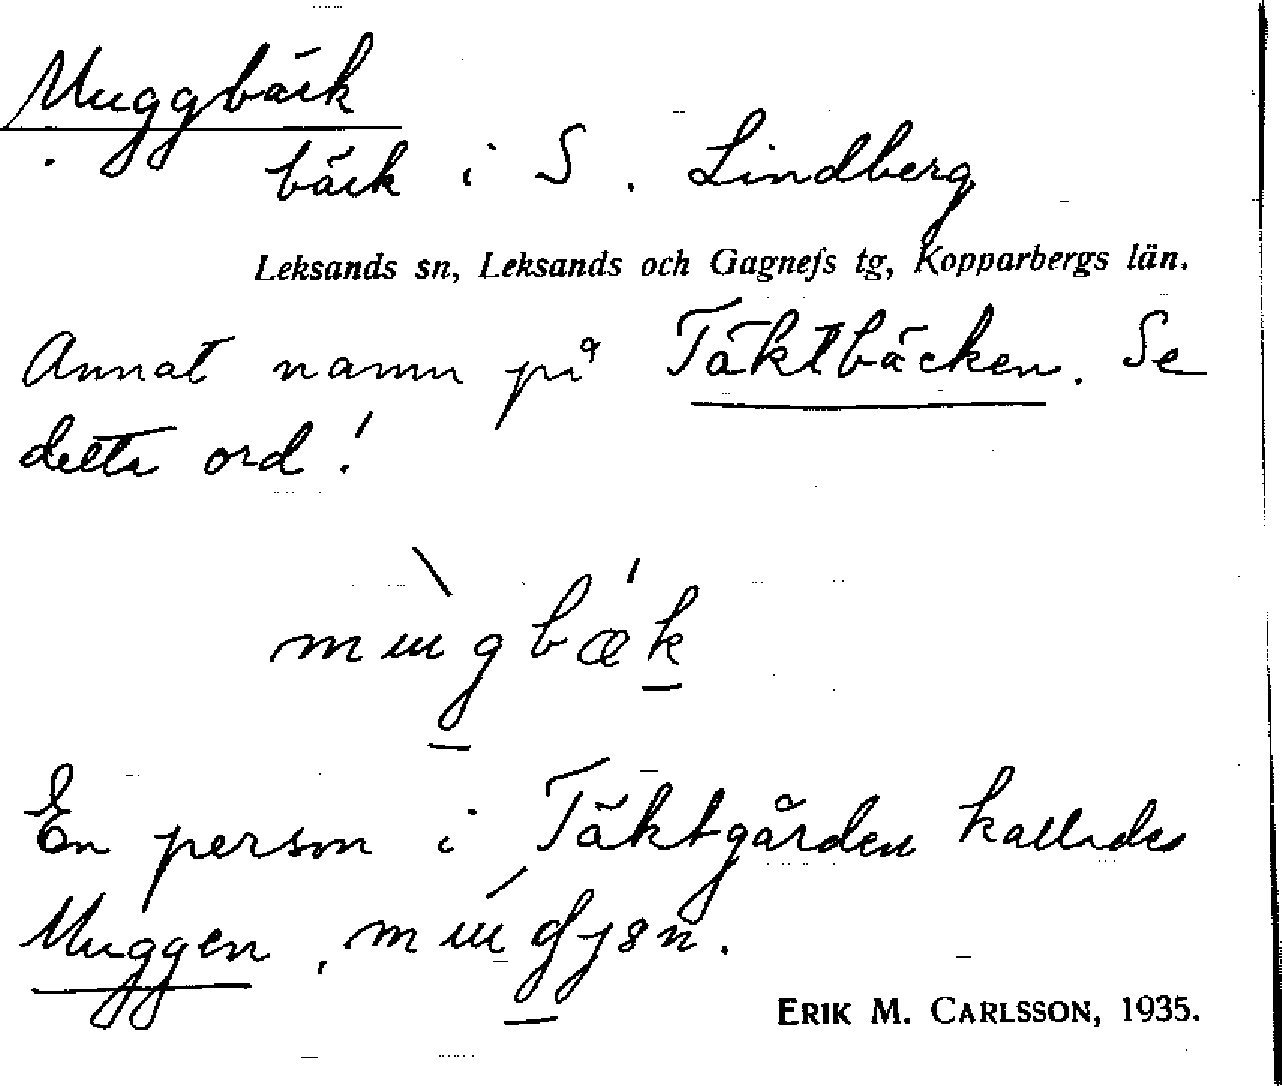 Muggbäck
bäck i S. Lindberg
Leksands sn, Leksands och Gagnefs tg, Kopparbergs län.
Annat namn på Täktbäcken. Se
detta ord!
mɯ̀gbǽk
En person i Täktgården kallades
Muggen,
ERIK M. CARLSSON, 1935.